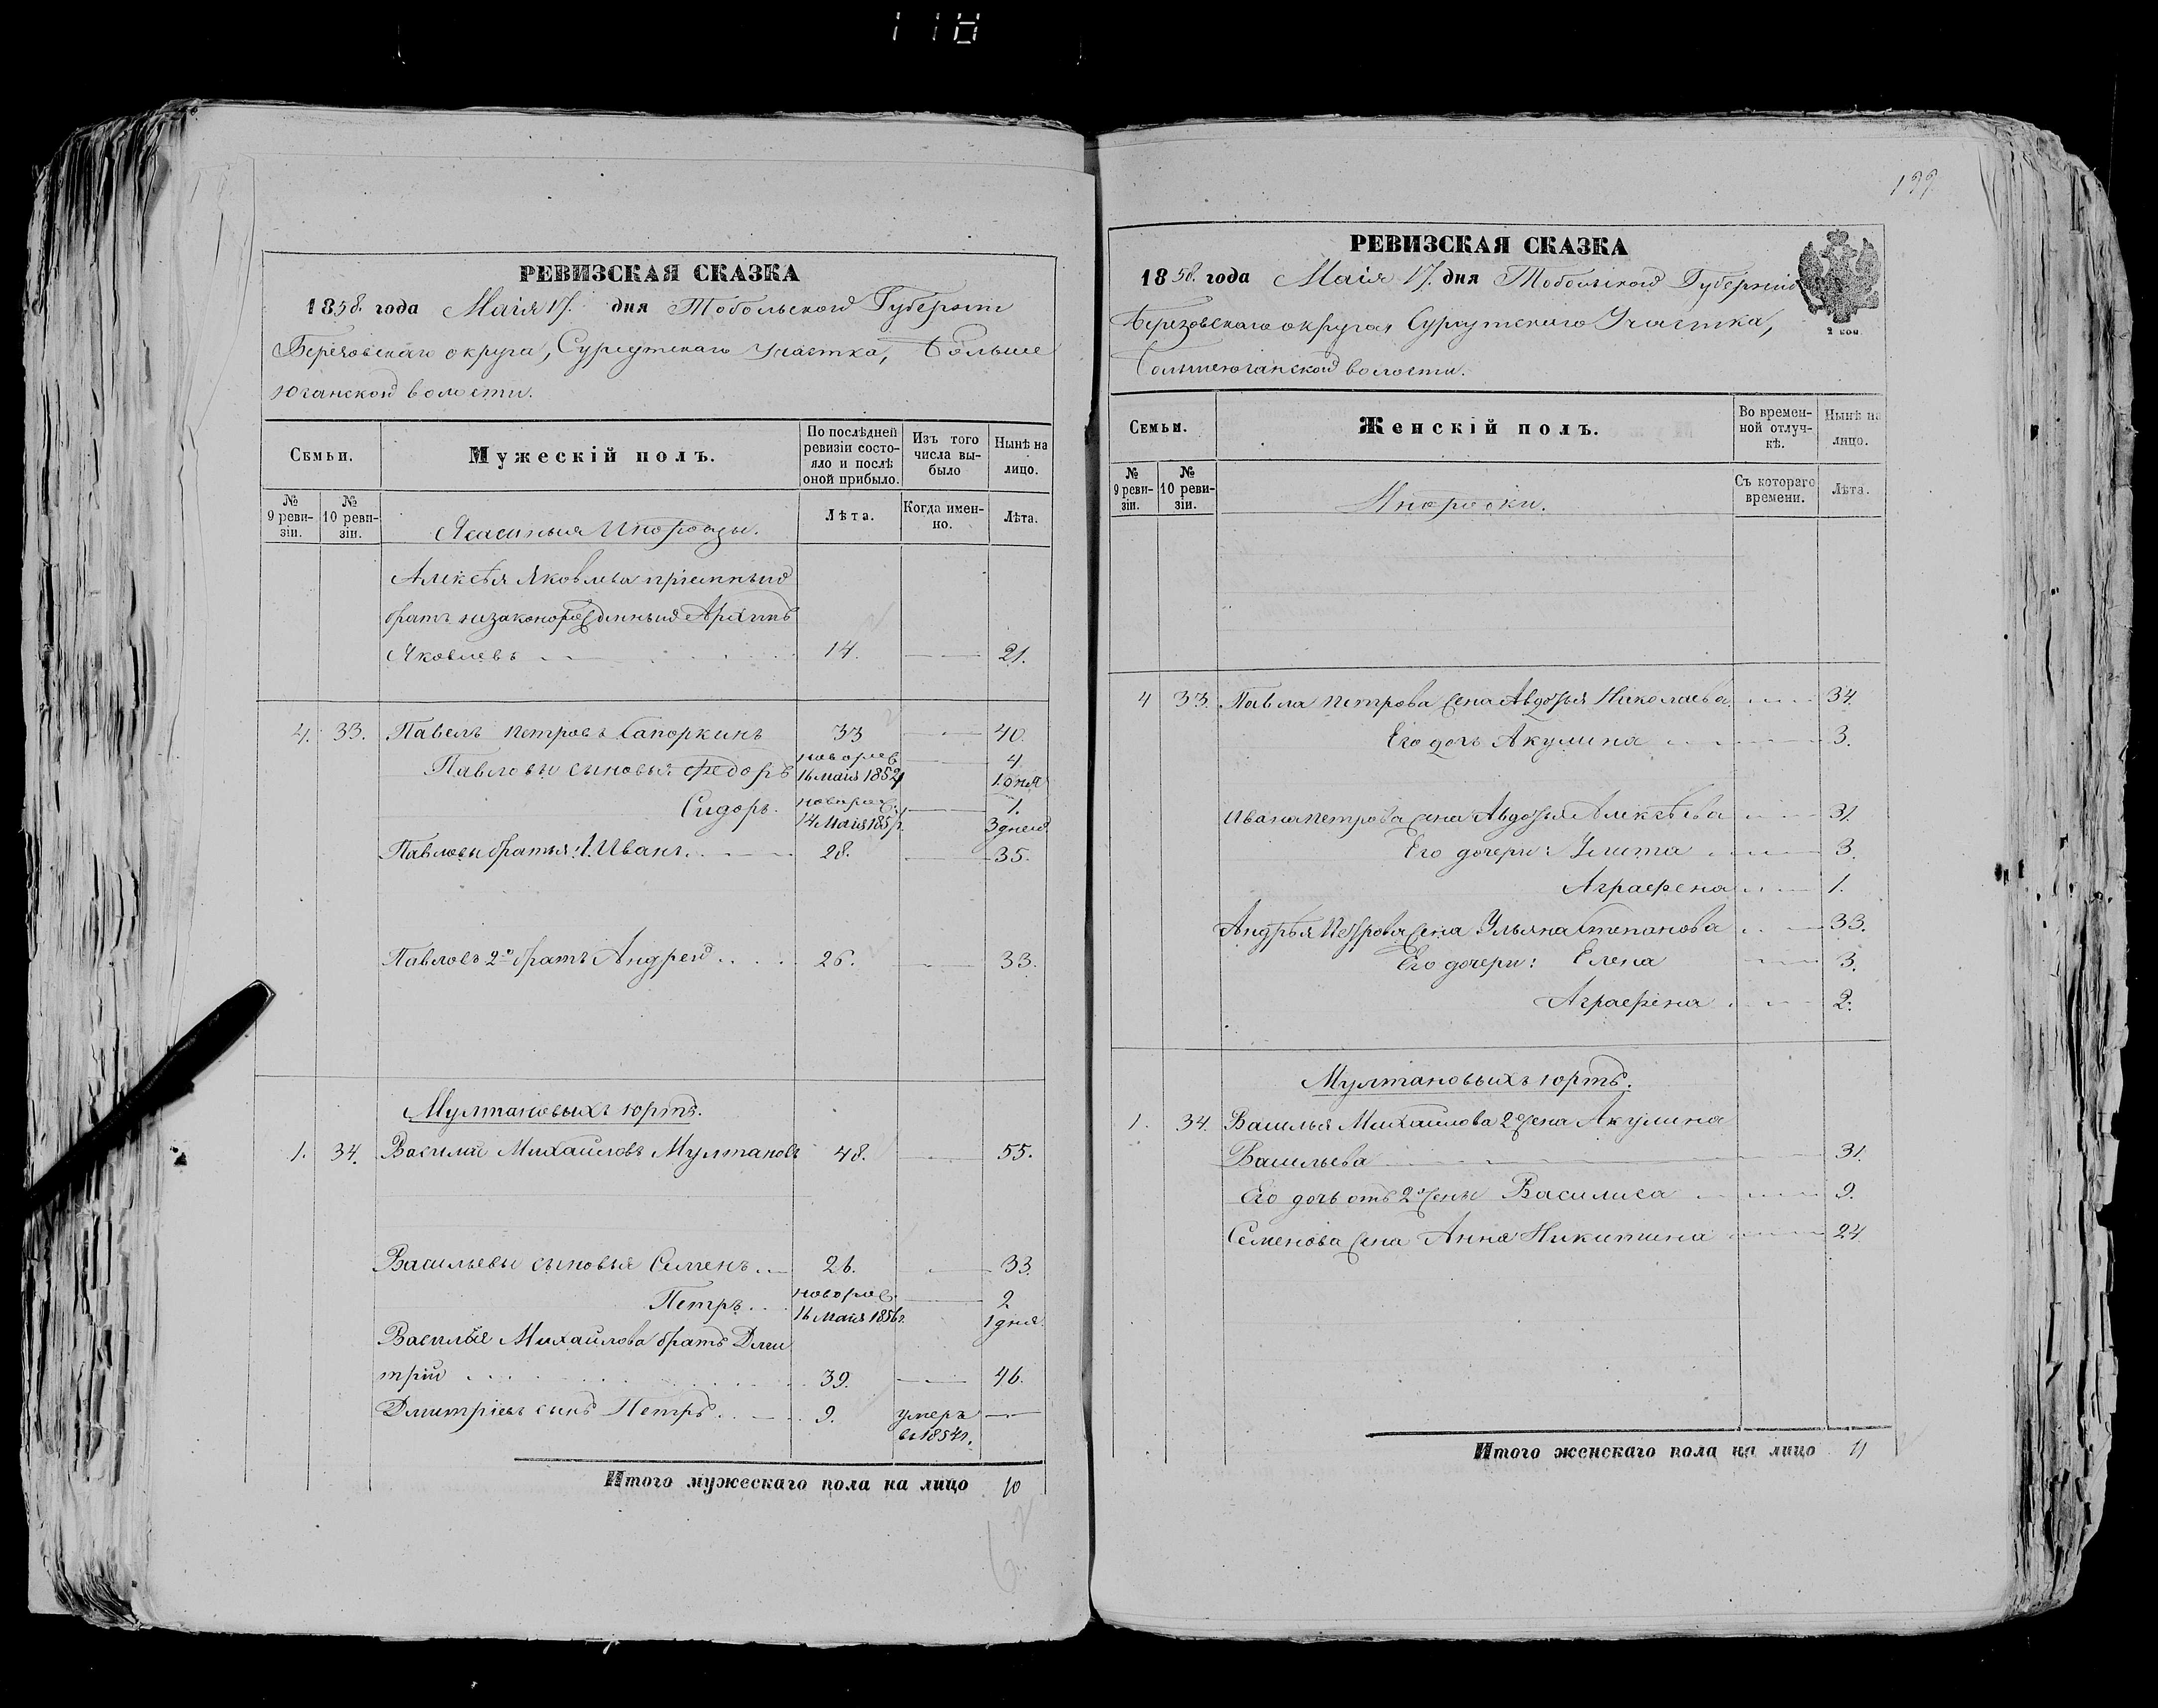 118
РЕВИЗСКАЯ СКАЗКА
1858. года Маія 17. дня Тобольской Губерніи
Березовскаго округа, Сургутскаго Участка, Больше
Юганской волости.
Семьи.
Мужескій полъ.
По послѣдней ревизіи состояло и послѣ оной прибыло.
Изъ того числа выбыло
Нынѣ на лицо.
№ 9 ревизіи.
№ 10 ревизіи.
Ясашныя Инородцы.
Лѣта.
Когда именно.
Лѣта.
Алексѣя Яковлева пріемный
братъ незаконорожденный Архипъ
Яковлевъ 14. 21.
4. 33. Павелъ Петровъ Сапоркинъ 33 40.
Павловы сыновья Федоръ новорож. 16 Маія 1854 4 1. дня
Сидоръ. новорож. 14 Маія 1857. 1. 3 дней.
Павловы братья: 1. Иванъ 28. 35.
Павловъ 2й братъ Андрей 26. 33.
Мултановыхъ юртъ.
1. 34. Василій Михайловъ Мултановъ 48. 55.
Васильевы сыновья Семенъ 26. 33.
Петръ новорож. 16 Маія 1856г. 2 1 дня.
Василья Михайлова братъ Дми
трій 39. 46.
Дмитріевъ сынъ Петръ 9. умеръ въ 1854г.
Итого мужескаго пола на лицо 10
62
199
РЕВИЗСКАЯ СКАЗКА
1858. года Маія 17. дня Тобольской Губерніи
2 коп.
Березовскаго округа, Сургутскаго Участка,
Большеюганской волости.
Семьи.
Женскій полъ.
Во временной отлучкѣ.
Нынѣ на лицо.
№ 9 ревизіи.
№ 10 ревизіи.
Инородки.
Съ котораго времени.
Лѣта.
4 33. Павла Петрова жена Авдотья Николаева 34.
Его дочь Акулина 3.
Ивана Петрова жена Авдотья Алексѣева 31.
Его дочери: Улита 3.
Аграфена 1.
Андрея Петрова жена Ульяна Степанова 33.
Его дочери: Елена 3.
Аграфена 2.
Мултановыхъ юртъ.
1. 34. Василья Михайлова 2 жена Акулина
Васильева 31.
Его дочь отъ 2 жены Василиса 9.
Семенова жена Анна Никитина 24
Итого женскаго пола на лицо 11